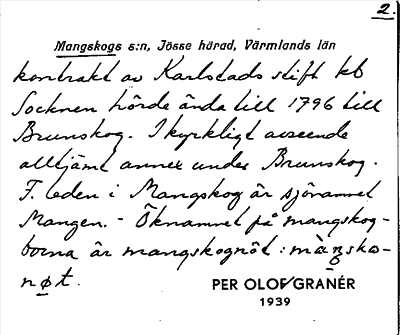 2.
Mangskogs s:n, Jösse härad, Värmlands län
kontrakt av Karlstads stift
Socknen hörde ända till 1796 till
Brunskog. I kyrkligt avseende
alltjämt annex under Brunskog.
F. leden i Mangskog är sjönamnet
Mangen. - Öknamnet på mangskog-
borna är mangskognöt :
nøt.
PER OLOF GRANÉR
1939